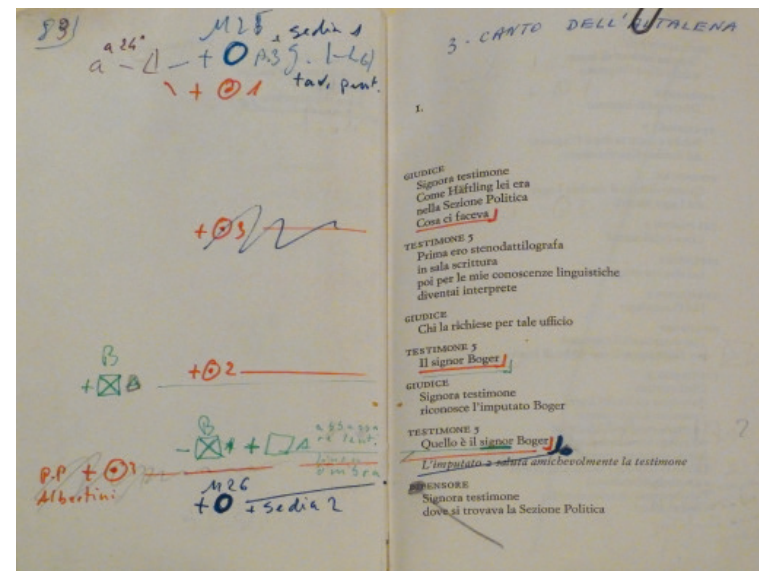 89
M25 + sedia 1
a 26"
+ O p.3
tav. pent.
+ 1
+ 3
B
+
+ 2
B
- +
P.P + 3
Albertini
M26
+ O + sedia 2
3 - CANTO DELL'ALTALENA
1.
GIUDICE
Signora testimone
Come Häftling lei era
nella Sezione Politica
Cosa ci faceva
TESTIMONE 5
Prima ero stenodattilografa
in sala scrittura
poi per le mie conoscenze linguistiche
diventai interprete
GIUDICE
Chi la richiese per tale ufficio
TESTIMONE 5
Il signor Boger
GIUDICE
Signora testimone
riconosce l'imputato Boger
TESTIMONE 5
Quello è il signor Boger
L'imputato 2 saluta amichevolmente la testimone
DIFENSORE
Signora testimone
dove si trovava la Sezione Politica
?